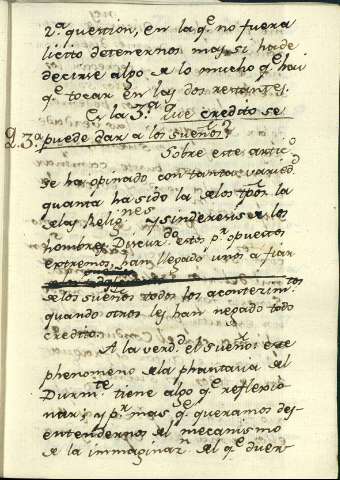 2.ª question, en la q.e no fuera
licito detenernos mas, si ha de
decirse algo de lo mucho q.e hai
q.e tocar en las dos restantes.
Es la 3.ª Que credito se
Q. 3.ª puede dar a los sueños?
Sobre este artic.o
se ha opinado con tanta varied.d
quanta ha sido la de los tpōs, la
de las Relig.nes y sinderesis de los
hombres. Discur.do estos p.r opuestos
extremos, han llegado unos a fiar
de los sueños todos los acontecim.tos
quando otros les han negado todo
credito.
A la verd.d el sueño, ese
phenomeno de la phantasia del
Durm.te tiene algo q.e reflexio-
nar, y p.r mas q.e queramos des-
entendernos del mecanismo
de la immaginac.n del q.e duer-